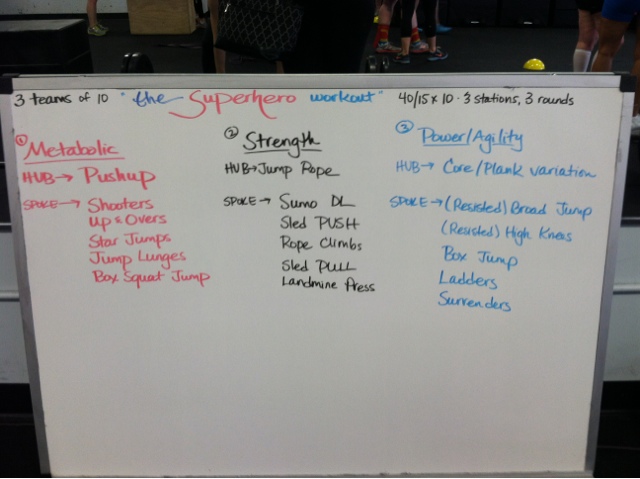 3 teams of 10 "the Superhero workout" 40/15 x 10 · 3 stations, 3 rounds
① Metabolic
HUB → Pushup
SPOKE → Shooters
Up & Overs
Star Jumps
Jump Lunges
Box Squat Jump
② Strength
HUB → Jump Rope
SPOKE → Sumo DL
Sled PUSH
Rope Climbs
Sled PULL
Landmine Press
③ Power/Agility
HUB → Core/Plank variation
SPOKE → (Resisted) Broad Jump
(Resisted) High Knees
Box Jump
Ladders
Surrenders